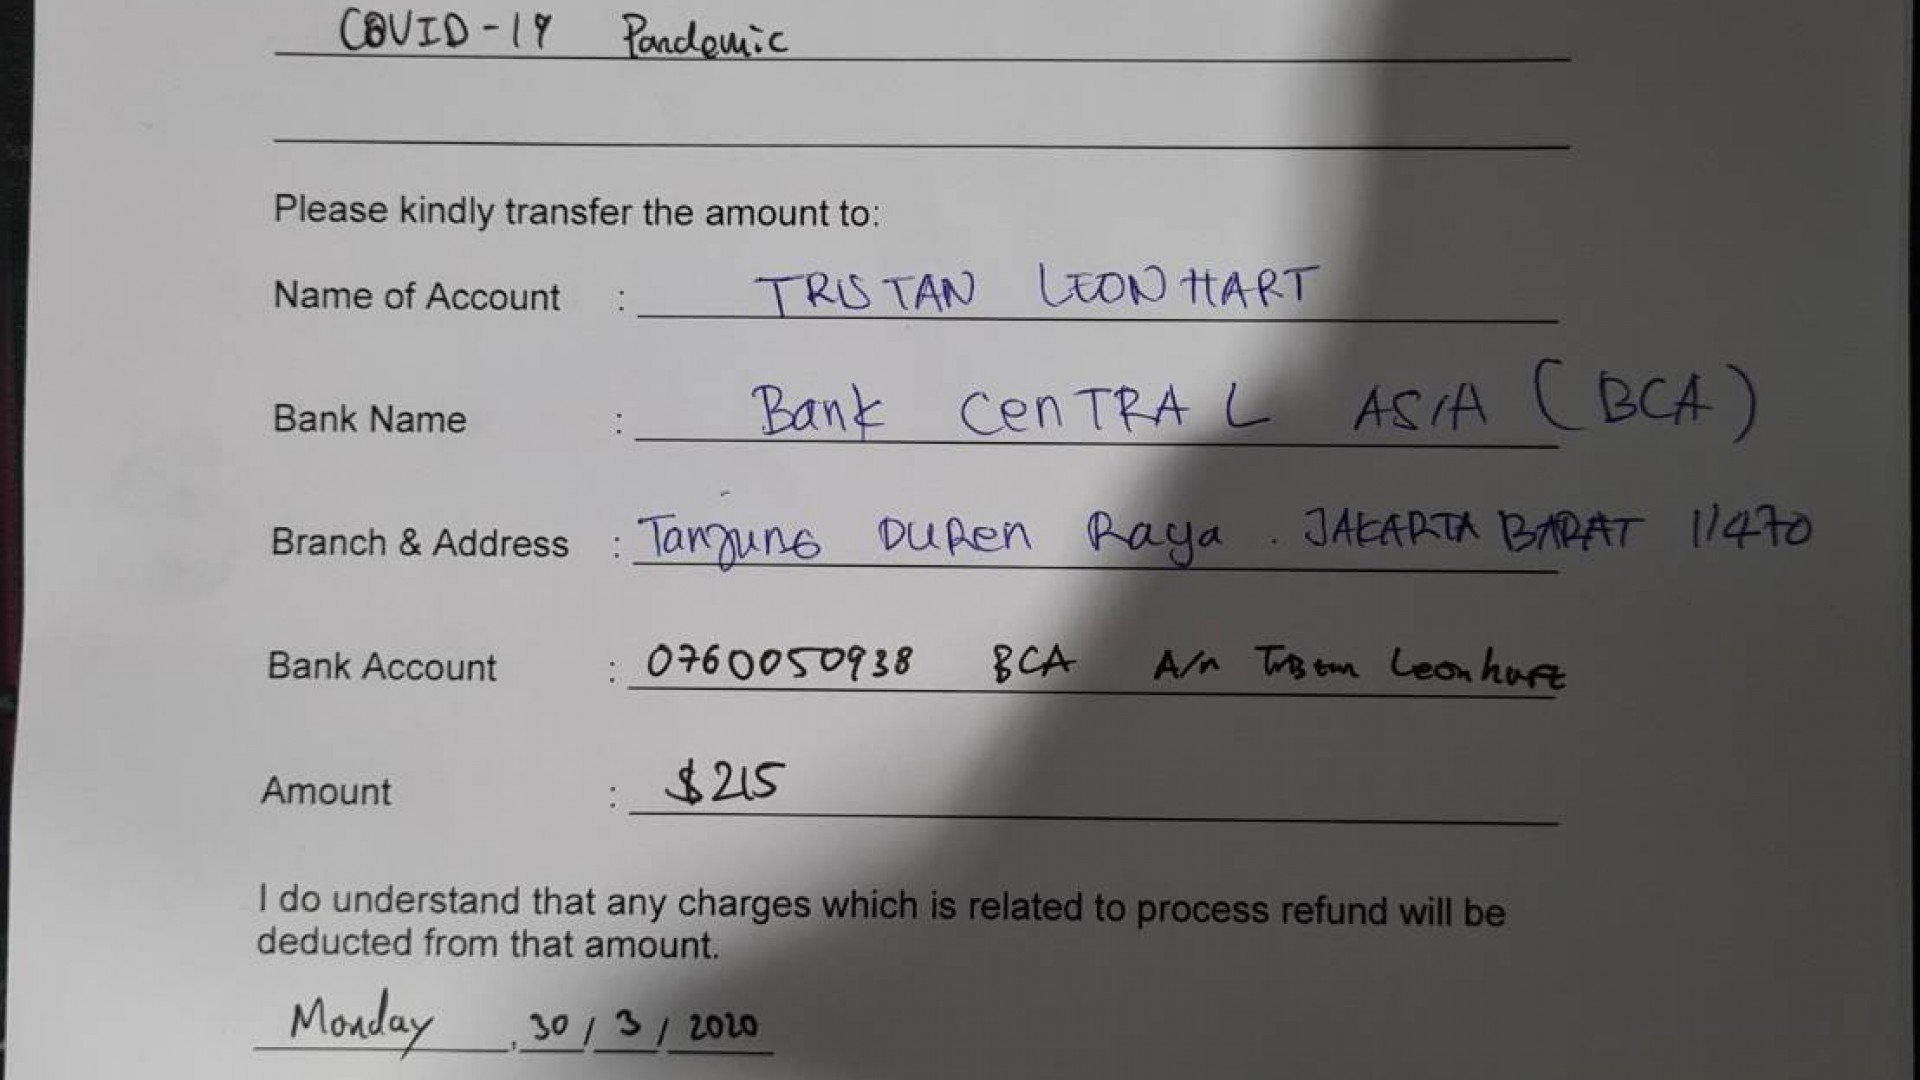 COVID-19 Pandemic
Please kindly transfer the amount to:
Name of Account : TRISTAN LEONHART
Bank Name : Bank CenTRAL ASIA (BCA)
Branch & Address : Tanjung DuRen Raya . JAKARTA BARAT 11470
Bank Account : 0760050938 BCA A/n Tristan Leonhart
Amount : $215
I do understand that any charges which is related to process refund will be
deducted from that amount.
Monday , 30 / 3 / 2020